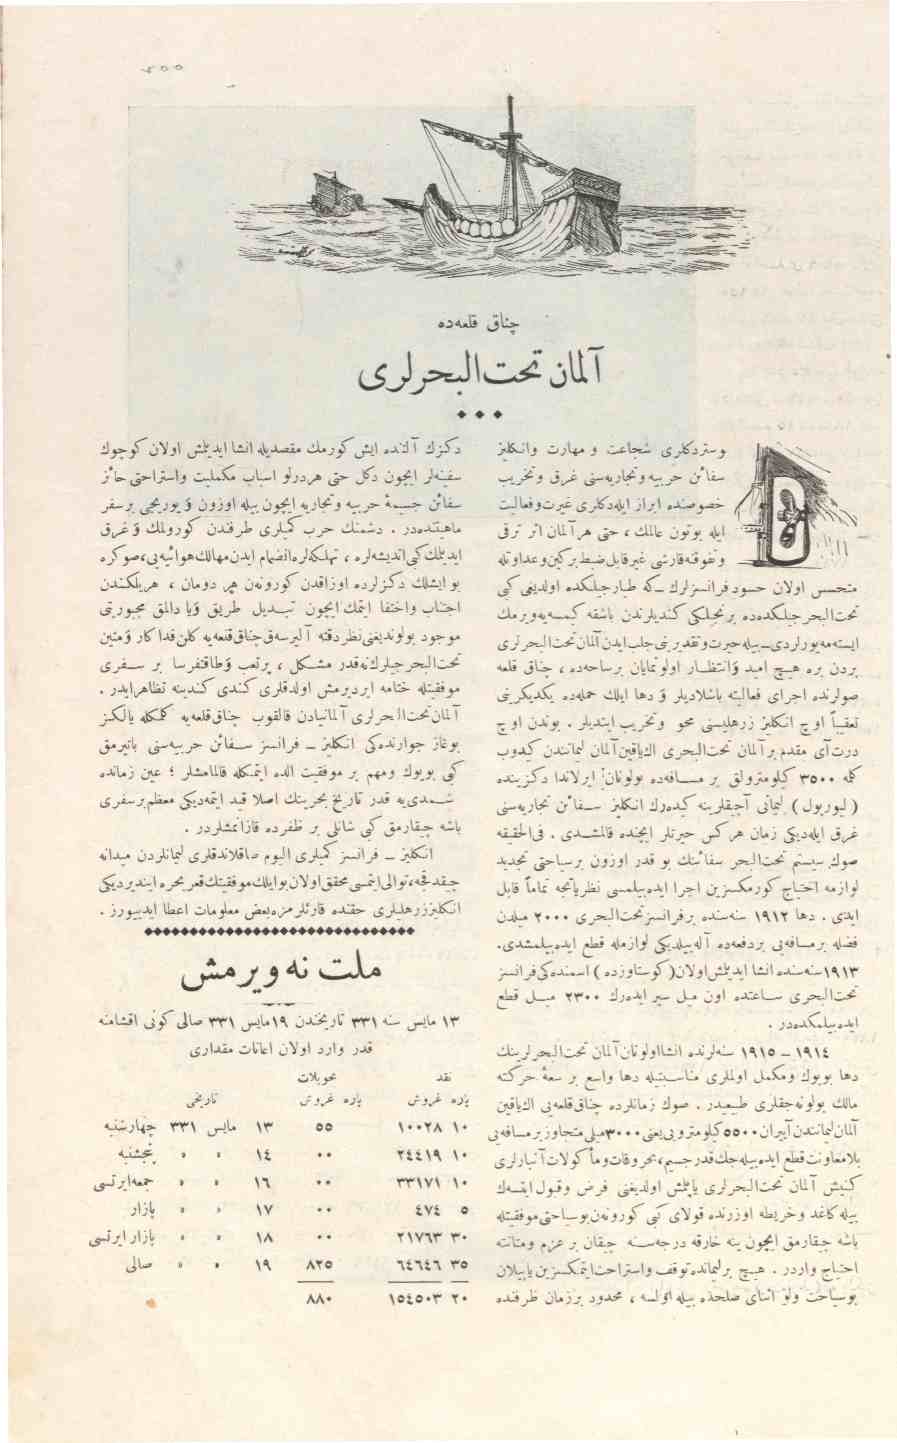 ٤٠٠
چناق قلعه‌ده
آلمان تحت‌البحرلری
وستردكلری شجاعت و مهارت وانكلیز
سفائن حربیه وتجاریه‌سنی غرق وتخریب
خصوصنده ابراز ایله‌دكلری غیرت وفعالیت
ایله بوتون عالمك ، حتی هر آلمان اثر ترقی
وتفوقنه قارشی غیرقابل ضبط بركین وعداوتله
متحسس اولان حسود فرانسزلرك ـ كه طیارجیلكده اولدیغی كبی
تحت‌البحرجیلكده‌ده برنجیلكی كندیلرندن باشقه كیمسه‌یه ویرمك
ایسته‌مه‌یورلردی ـ بیله حیرت وتقدیرینی جلب ایدن آلمان تحت‌البحرلری
بردن بره هیچ امید وانتظار اولونمایان برساحه‌ده ، چناق قلعه
صولرنده اجرای فعالیته باشلادیلر و دها ایلك حمله‌ده یكدیكرینی
تعقیباً اوچ انكلیز زرهلیسنی محو وتخریب ایتدیلر . بوندن اوچ
درت آی مقدم بر آلمان تحت‌البحری اك یاقین آلمان لیمانندن كیدوب
كله ٣٥٠٠ كیلومترولق بر مسافه‌ده بولونان ایرلاندا دكزینده
( لیورپول ) لیمانی آچیقلرینه كیده‌رك انكلیز سفائن تجاریه‌سنی
غرق ایله‌دیكی زمان هركس حیرتلر ایچنده قالمشدی . فی‌الحقیقه
صوك سیستم تحت‌البحر سفائنك بو قدر اوزون برسیاحتی تجدید
لوازمه احتیاج كورمكسزین اجرا ایده‌بیلمسی نظریاتجه تماماً قابل
ایدی . دها ١٩١٢ سنه‌سنده برفرانسز تحت‌البحری ٢٠٠٠ میلدن
فضله برمسافه‌یی بردفعه‌ده آله‌بیلدیكی لوازمله قطع ایده‌بیلمشدی.
١٩١٣ سنه‌سنده انشا ایدیلمش اولان ( كوستاوزده ) اسمنده‌كی فرانسز
تحت‌البحری ساعتده اون میل سیر ایده‌رك ٢٣٠٠ میل قطع
ایده‌بیلمكده‌در .
١٩١٤ ـ ١٩١٥ سنه‌لرنده انشا اولونان آلمان تحت‌البحرلرینك
دها بویوك ومكمل اولملری مناسبتیله دها واسع بر سعۀ حركته
مالك بولونه‌جقلری طبیعیدر . صوك زمانلرده چناق قلعه‌یی اك یاقین
آلمان لیمانندن آییران ٥٥٠٠ كیلومترویی یعنی ٣٠٠٠ میلی متجاوز برمسافه‌یی
بلامعاونت قطع ایده‌بیله‌جك قدر جسیم، محروقات ومأكولات آنبارلری
كنیش آلمان تحت‌البحرلری یاپلمش اولدیغنی فرض وقبول ایتسه‌ك
بیله كاغد وخریطه اوزرنده قولای كبی كورونه‌ن بوسیاحتی موفقیتله
باشه چیقارمق ایچون ینه خارقه درجه‌سنه چیقان بر عزم ومتانته
احتیاج واردر . هیچ برلیمانده توقف واستراحت ایتمكسزین یاپیلان
بوسیاحت ولو اثنای صلحده بیله اولسه ، محدود برزمان ظرفنده
دكزك آلتنده ایش كورمك مقصدیله انشا ایدیلمش اولان كوچوك
سفینه‌لر ایچون دكل حتی هردرلو اسباب مكملیت واستراحتی حائز
سفائن جسیمۀ حربیه وتجاریه ایچون بیله اوزون و یوریجی برسفر
ماهیتنده‌در . دشمنك حرب كمیلری طرفندن كورولمك و غرق
ایدیلمك كبی اندیشه‌لره ، تهلكه‌لره انضمام ایدن مهالك هوائیه‌یی، صوكره
بو ایشلك دكزلرده اوزاقدن كورونه‌ن هر دومان ، هریلكندن
اجتناب واختفا ایتمك ایچون تبدیل طریق ویا دالمق مجبوریتی
موجود بولوندیغنی نظر دقته آلیرسه‌ق چناق قلعه‌یه كلن فداكار ومتین
تحت‌البحرجیلرك نه‌قدر مشكل ، پرتعب وطاقتفرسا بر سفری
موفقیتله ختامه ایردیرمش اولدقلری كندی كندینه تظاهر ایدر .
آلمان تحت‌البحرلری آلمانیادن قالقوب چناق قلعه‌یه كلمكله یالكز
بوغاز جوارنده‌كی انكلیز ـ فرانسز سفائن حربیه‌سنی باتیرمق
كبی بویوك ومهم بر موفقیت الده ایتمكله قالمامشلر ؛ عین زمانده
شمدی‌یه قدر تاریخ بحریتك اصلا قید ایتمه‌دیكی معظم برسفری
باشه چیقارمق كبی شانلی بر ظفرده قازانمشلردر .
انكلیز ـ فرانسز كمیلری الیوم صاقلاندقلری لیمانلردن میدانه
چیقدقجه، توالی ایتمسی محقق اولان بو ایلك موفقیتك قعر بحره ایندیردیكی
انكلیز زرهلیلری حقنده قارئلرمزه بعض معلومات اعطا ایدییورز .
ملت نه ویرمش
١٣ مایس سنه ٣٣١ تاریخندن ١٩ مایس ٣٣١ صالی كونی اقشامنه
قدر وارد اولان اعانات مقداری
نقد تحویلات
پاره غروش پاره غروش تاریخی
١٠ ١٠٠٢٨ ٥٥ ١٣ مایس ٣٣١ چهارشنبه
١٠ ٢٤٤١٩ ٠٠ ١٤ » » پنجشنبه
١٠ ٣٣١٧١ ٠٠ ١٦ » » جمعه‌ایرتسی
٥ ٤٧٤ ٠٠ ١٧ » » بازار
٣٠ ٢١٧٦٣ ٠٠ ١٨ » » بازار ایرتسی
٣٥ ٦٤٦٤٦ ٨٢٥ ١٩ » » صالی
٢٠ ١٥٤٥٠٣ ٨٨٠